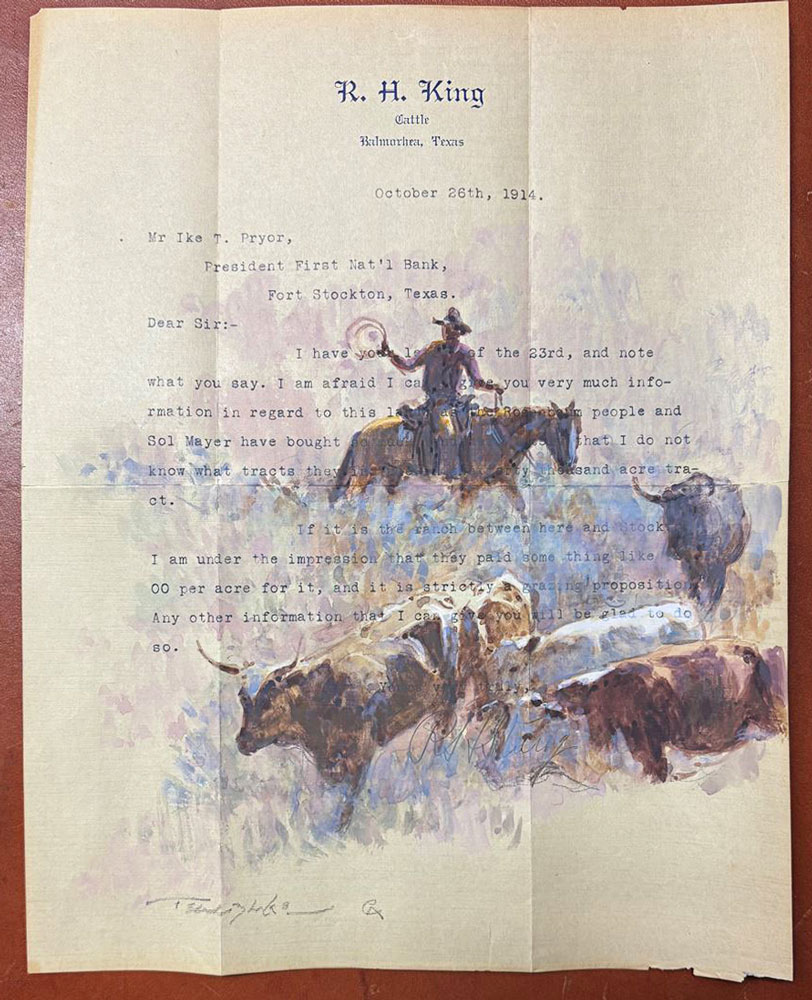 R. H. King
Cattle
Balmorhea, Texas
October 26th, 1914.
Mr Ike T. Pryor,
President First Nat'l Bank,
Fort Stockton, Texas.
Dear Sir:-
I have your of the 23rd, and note
what you say. I am afraid I give you very much info-
rmation in regard to this the people and
Sol Mayer have bought that I do not
know what tracts they thousand acre tra-
ct.
If it is the ranch between here and
I am under the impression that they paid some thing like
00 per acre for it, and it is strictly a grazing proposition
Any other information that I can give you will be glad to do
so.